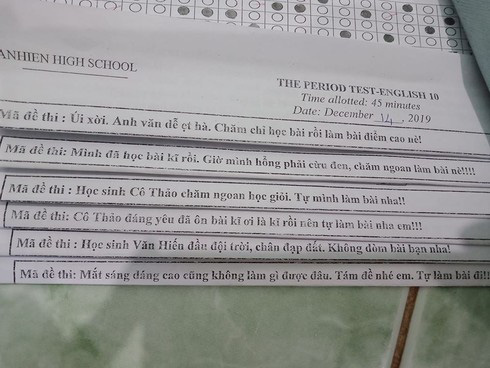 ANHIEN HIGH SCHOOL
THE PERIOD TEST-ENGLISH 10
Time allotted: 45 minutes
Date: December 14, 2019
Mã đề thi : Úi xời. Anh văn dễ ẹt hà. Chăm chỉ học bài rồi làm bài điểm cao nè!
Mã đề thi: Mình đã học bài kĩ rồi. Giờ mình hổng phải cừu đen, chăm ngoan làm bài nè!!!!
Mã đề thi : Học sinh Cô Thảo chăm ngoan học giỏi. Tự mình làm bài nha!!
Mã đề thi: Cô Thảo đáng yêu đã ôn bài kĩ ơi là kĩ rồi nên tự làm bài nha em!!!
Mã đề thi : Học sinh Văn Hiến đầu đội trời, chân đạp đất. Không dòm bài bạn nha!
Mã đề thi: Mắt sáng dáng cao cũng không làm gì được đâu. Tám đề nhé em. Tự làm bài đi!!